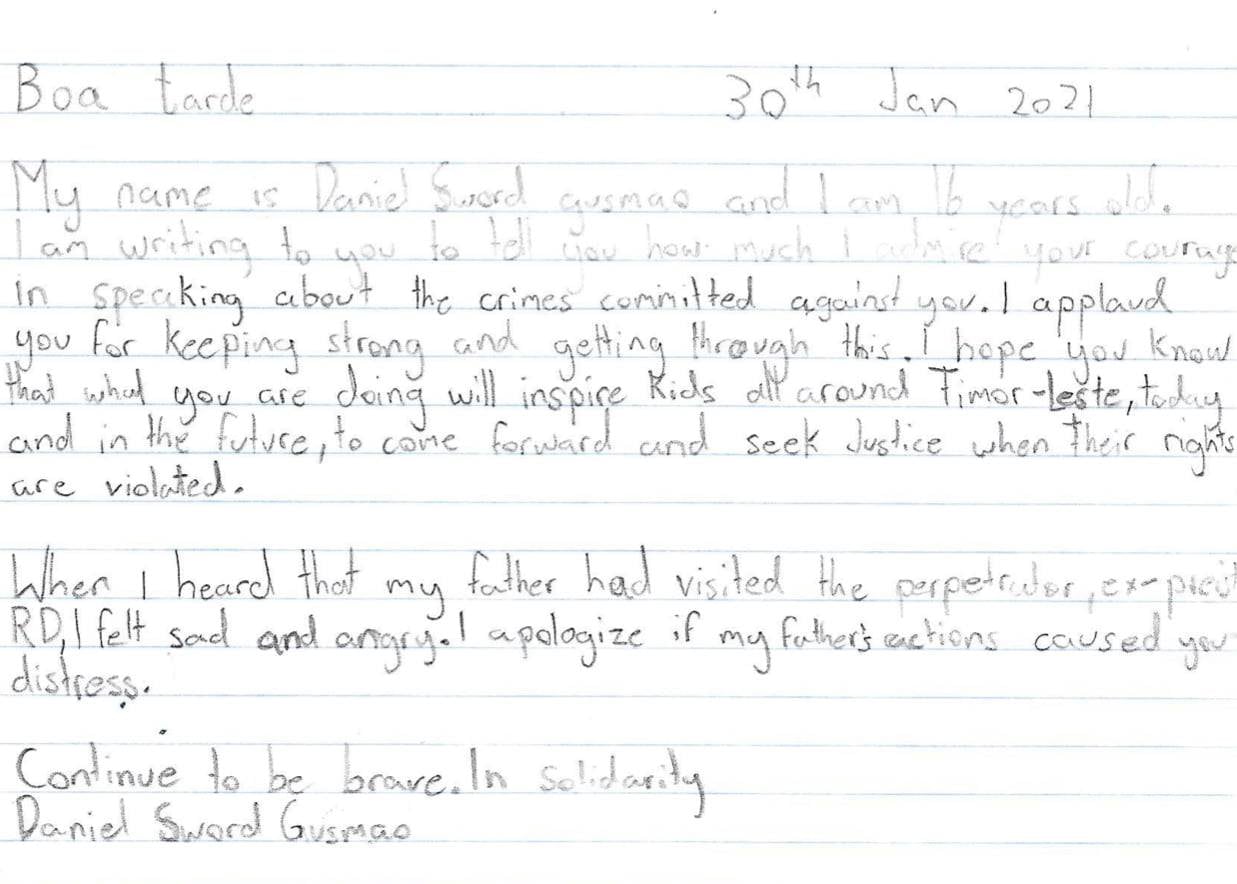 Boa tarde 30th Jan 2021
My name is Daniel Sword gusmao and I am 16 years old.
I am writing to you to tell you how much I admire your courage
in speaking about the crimes committed against you. I applaud
you for keeping strong and getting through this. I hope you know
that what you are doing will inspire kids all around Timor-Leste, today
and in the future, to come forward and seek Justice when their rights
are violated.
When I heard that my father had visited the perpetrator, ex-preist
RD, I felt sad and angry. I apologize if my father's actions caused you
distress.
Continue to be brave. In solidarity
Daniel Sword Gusmao